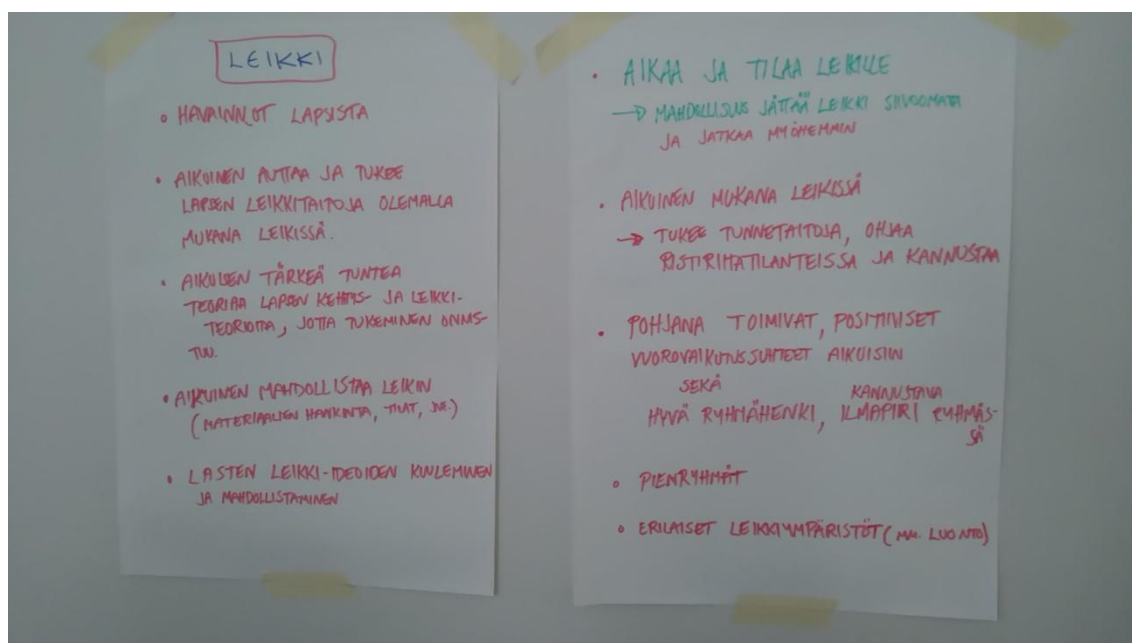 LEIKKI
• HAVAINNOT LAPSISTA
• AIKUINEN AUTTAA JA TUKEE
LAPSEN LEIKKITAITOJA OLEMALLA
MUKANA LEIKISSÄ.
• AIKUISEN TÄRKEÄ TUNTEA
TEORIAA LAPSEN KEHITYS- JA LEIKKI-
TEORIOITA, JOTTA TUKEMINEN ONNIS-
TUU.
• AIKUINEN MAHDOLLISTAA LEIKIN
(MATERIAALIEN HANKINTA, TILAT, JNE.)
• LASTEN LEIKKI-IDEOIDEN KUULEMINEN
JA MAHDOLLISTAMINEN
• AIKAA JA TILAA LEIKILLE
→ MAHDOLLISUUS JÄTTÄÄ LEIKKI SIIVOOMATTA
JA JATKAA MYÖHEMMIN
• AIKUINEN MUKANA LEIKISSÄ
→ TUKEE TUNNETAITOJA, OHJAA
RISTIRIITATILANTEISSA JA KANNUSTAA
• POHJANA TOIMIVAT, POSITIIVISET
VUOROVAIKUTUSSUHTEET AIKUISIIN
SEKÄ
HYVÄ RYHMÄHENKI, KANNUSTAVA ILMAPIIRI RYHMÄS-
SÄ
• PIENRYHMÄT
• ERILAISET LEIKKIYMPÄRISTÖT (MM. LUONTO)